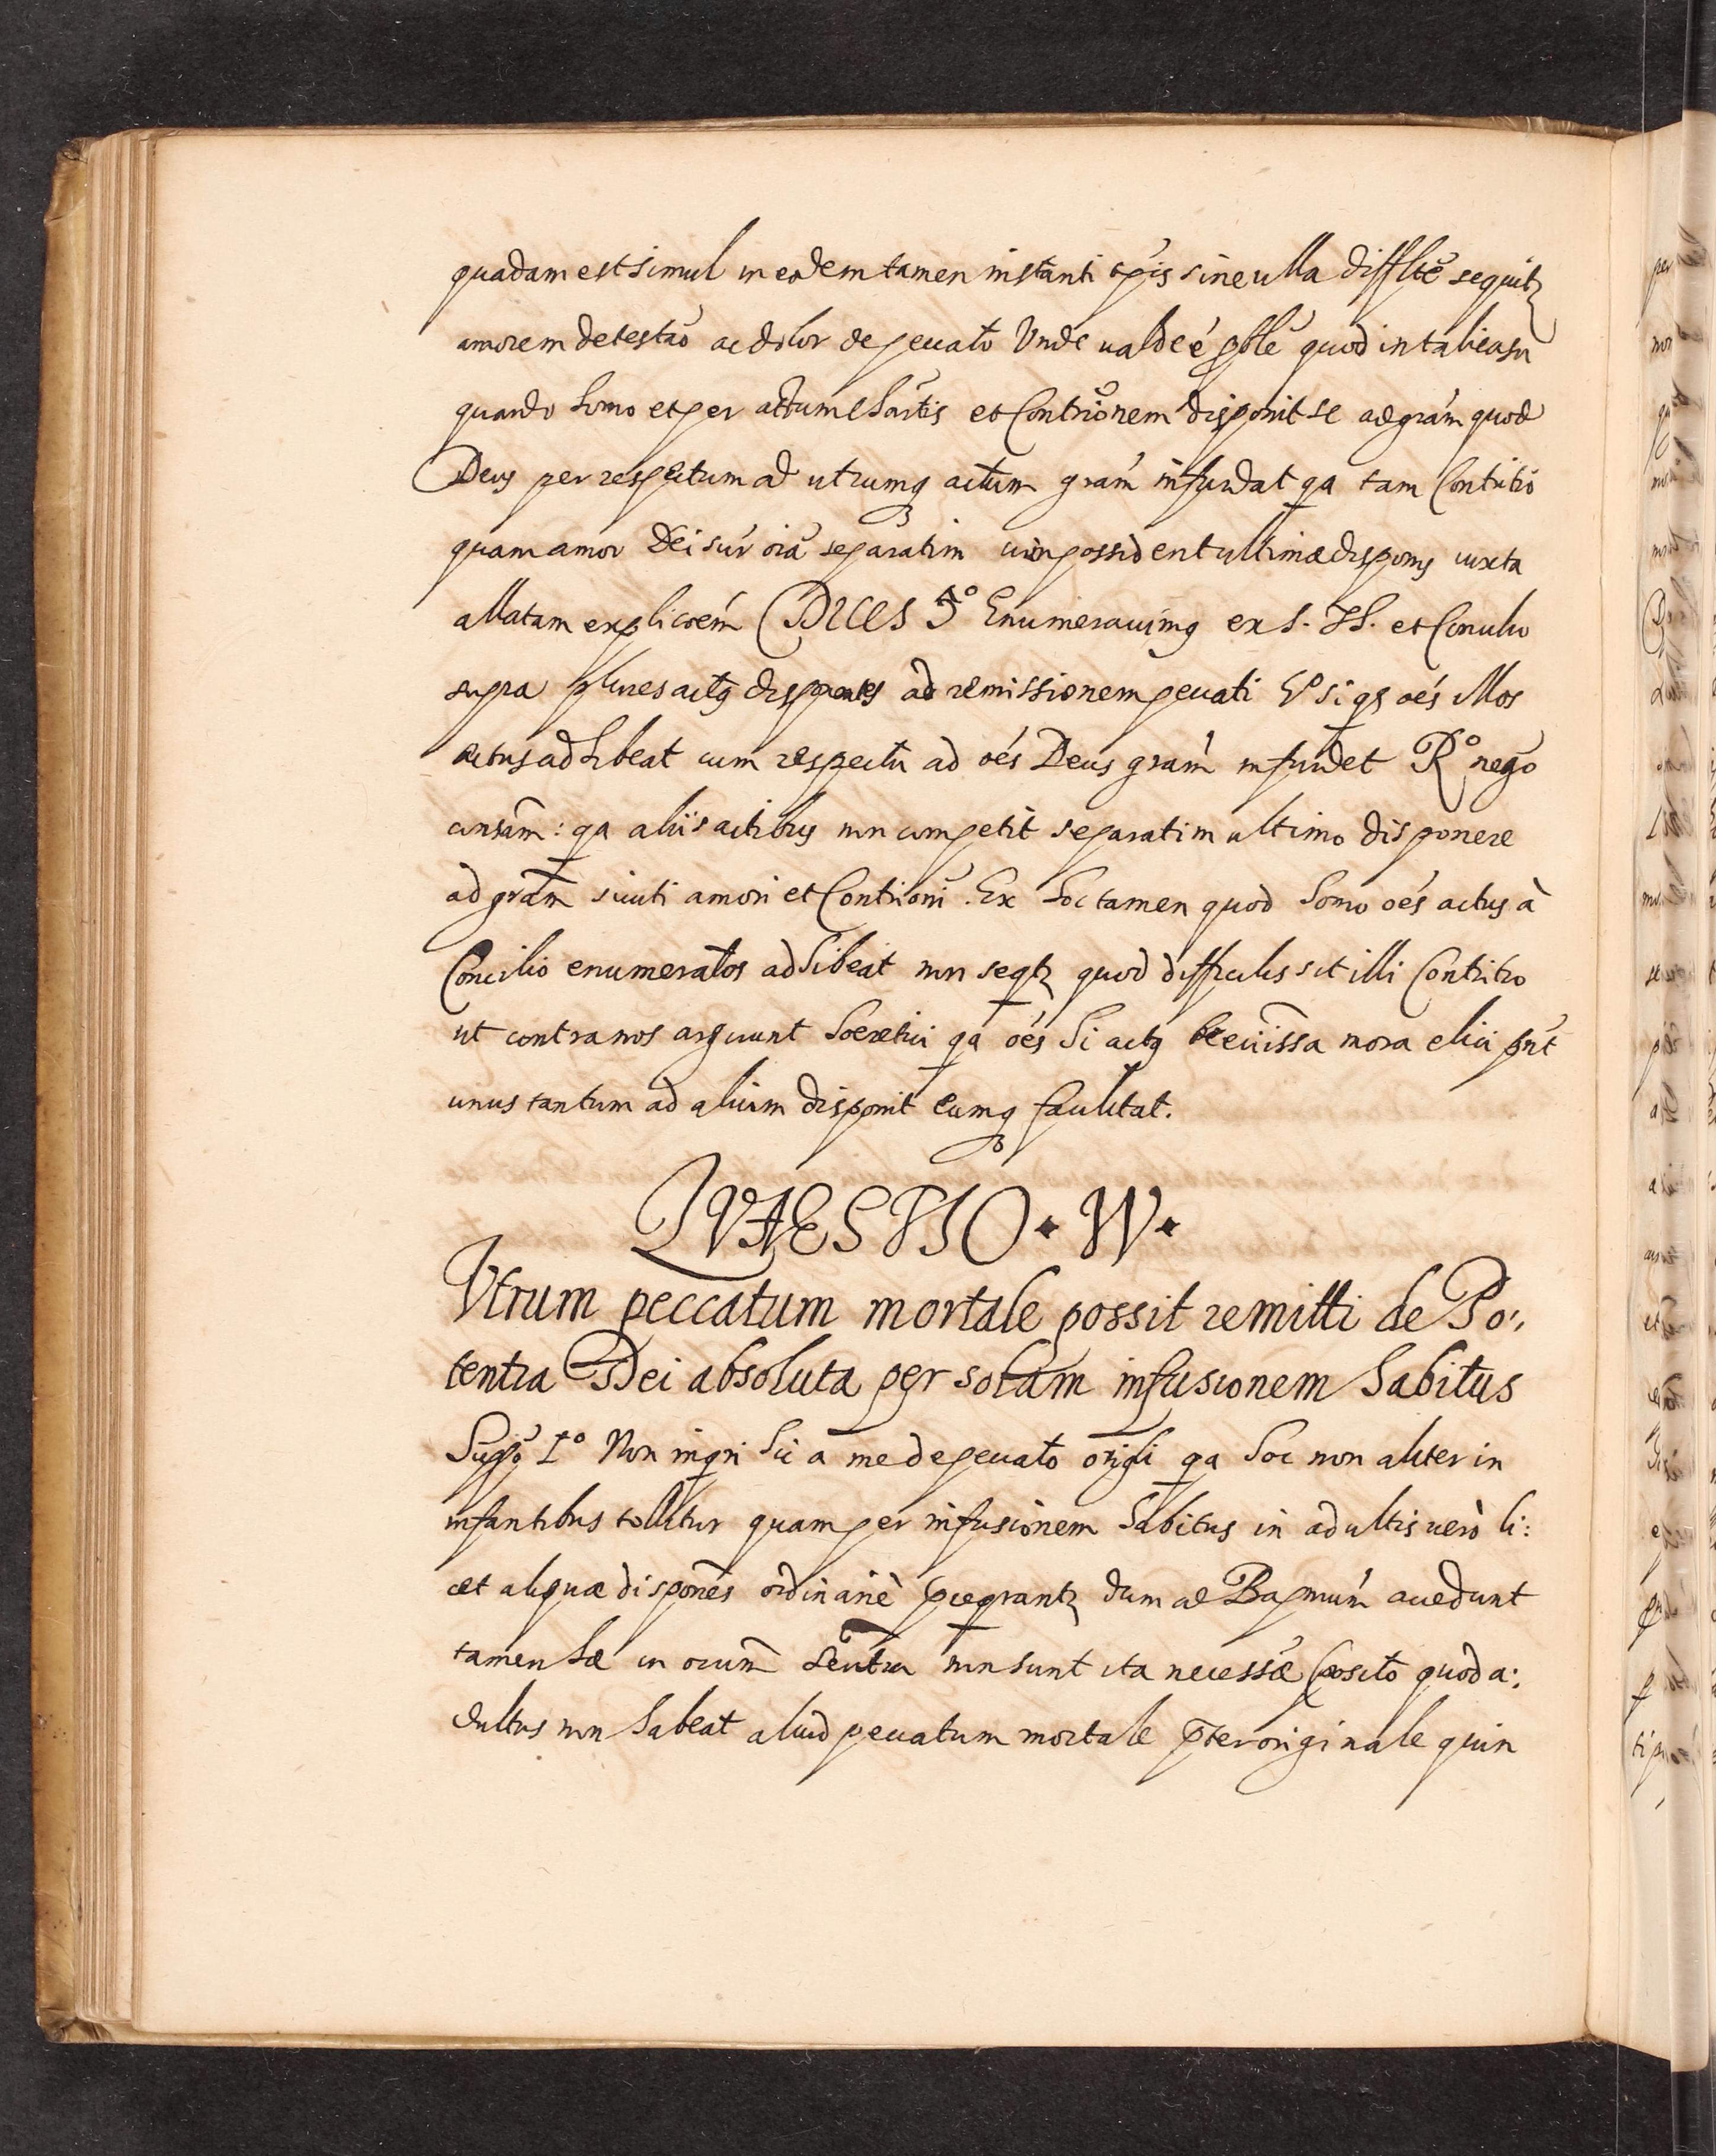 quadam est simul in eodem tamen instanti tp̄is sine ulla diffłtē sequitꝫ
amorem detestāo ac dolor de peccato Unde valde é pble quod in tali casu
quando homo et per actum cháritis et Contriōnem disponit se ad grám quod
Deus per respectum ad utrumqꝫ actum grám infundat qa tam Contritio
quam amor Dei súr oiá separatim possident ultimæ disponis iuxta
allatam explicoém DICES 5º Enumeravimꝰ ex S. et Concilio
supra plures actꝰ disponentes ad remissionem peccati Vº si qs oés illos
actus adhibeat cum respectu ad oés Deus grám infundet Rº nego
consam̄: qa aliis actibus non competit separatim ultimo disponere
ad grām sicuti amori et Contrioni. Ex hoc tamen quod homo oés actus à
Concilio enumeratos adhibeat non seqtꝫ quod difficilis sit illi Contritio
ut contra nos arguunt hæretici qá oés hi actꝰ breviissa mora elici pnt
unus tantum ad alium disponit eumqꝫ facilitat.
QVAESTIO • IV •
Vtrum peccatum mortale possit remitti de Po:,
tentia Dei absoluta per solam infusionem habitus
Suppo 1º Non inqri hic a me de peccato origli qa hoc non aliter in
infantibus tollitur quam per infusionem habitus in adultis verò li:
cet aliquæ dispones ordinariè præqrantꝫ dum ad Bapmúm accedunt
tamen hæ in oium̄ sen̄tia non sunt ita necessæ posito quod a:
dultus non habeat aliud peccatum mortale p̄ter originale quin